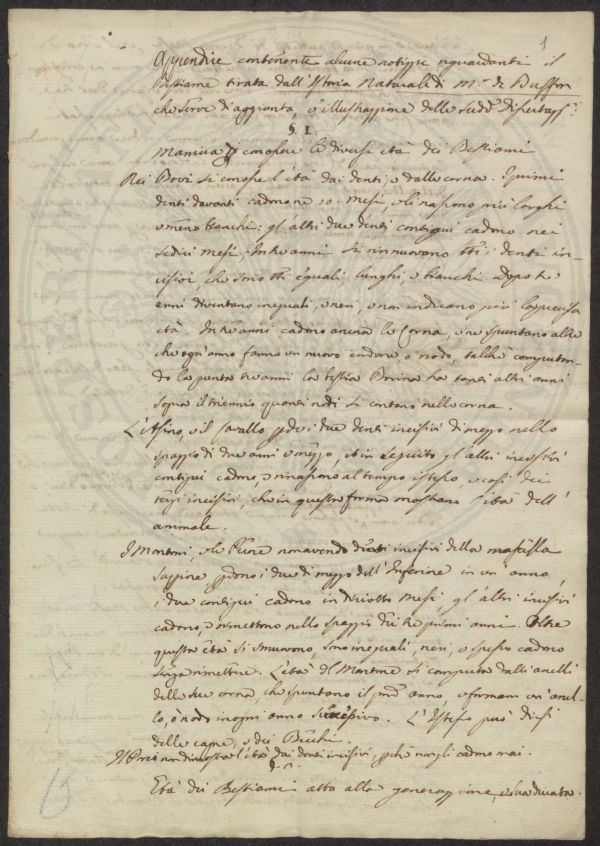 1
Appendice continente alcune notizze riguardanti il
Bestiame tirata dall'Istoria Naturale di M.r de Buffon
che serve d'aggionta, e illustrazzione delle sudd.e
§. I.
Maniera di conoscere le diverse età dei Bestiami
Nei Bovi si conosce l'età dai denti, e dalle corna. I primi
denti davanti cadono ne 10. mesi, e li nascono più larghi
e meno bianchi: gl'altri due denti contigui cadono nei
sedici mesi. In tre anni si rinnuovano tti i denti in-
cisivi, che sono tti eguali, lunghi, e bianchi. Dopo tre
anni diventano ineguali, e neri, e non indicano più la precisa
età. In tre anni cadono ancora le Corna, e ne spuntano altre
che ogn'anno fanno un nuovo cordone, o nodo, talchè computan-
do la punta tre anni la bestia Bovina ha tanti altri anni
sopra il triennio quanti nodi si contano nelle corna.
L'Asino, e il Cavallo pde i due denti incisivi di mezzo nello
spazzio di due anni e mezzo, et in seguito gl'altri incisivi
contigui cadono, e rinascono al tempo istesso, e così dei
terzi incisivi, che in questa forma mostrano l'età dell'
animale.
I Montoni, e le Pecore non avendo denti incisivi della mascella
supriore pdono i due di mezzo dell'Inferiore in un anno,
i due contigui cadono in diciotto mesi, gl'altri incisivi
cadono, e rimettono nello spazzio dei tre primi anni. Oltre
questa età si smuovono, sono ineguali, neri, e spesso cadono
senza rimettere. L'età del Montone si computa dall'anelli
delle sue corna, che spuntano il p.mo anno e formano un anel-
lo, o nodo in ogni anno successivo. L'Istesso può dirsi
delle capre, e dei Becchi.
Il Porco non dimostra l'età dai denti incisivi, pchè non gli cadono mai.
§.
Età dei Bestiami atta alla generazzione, e sua durata.